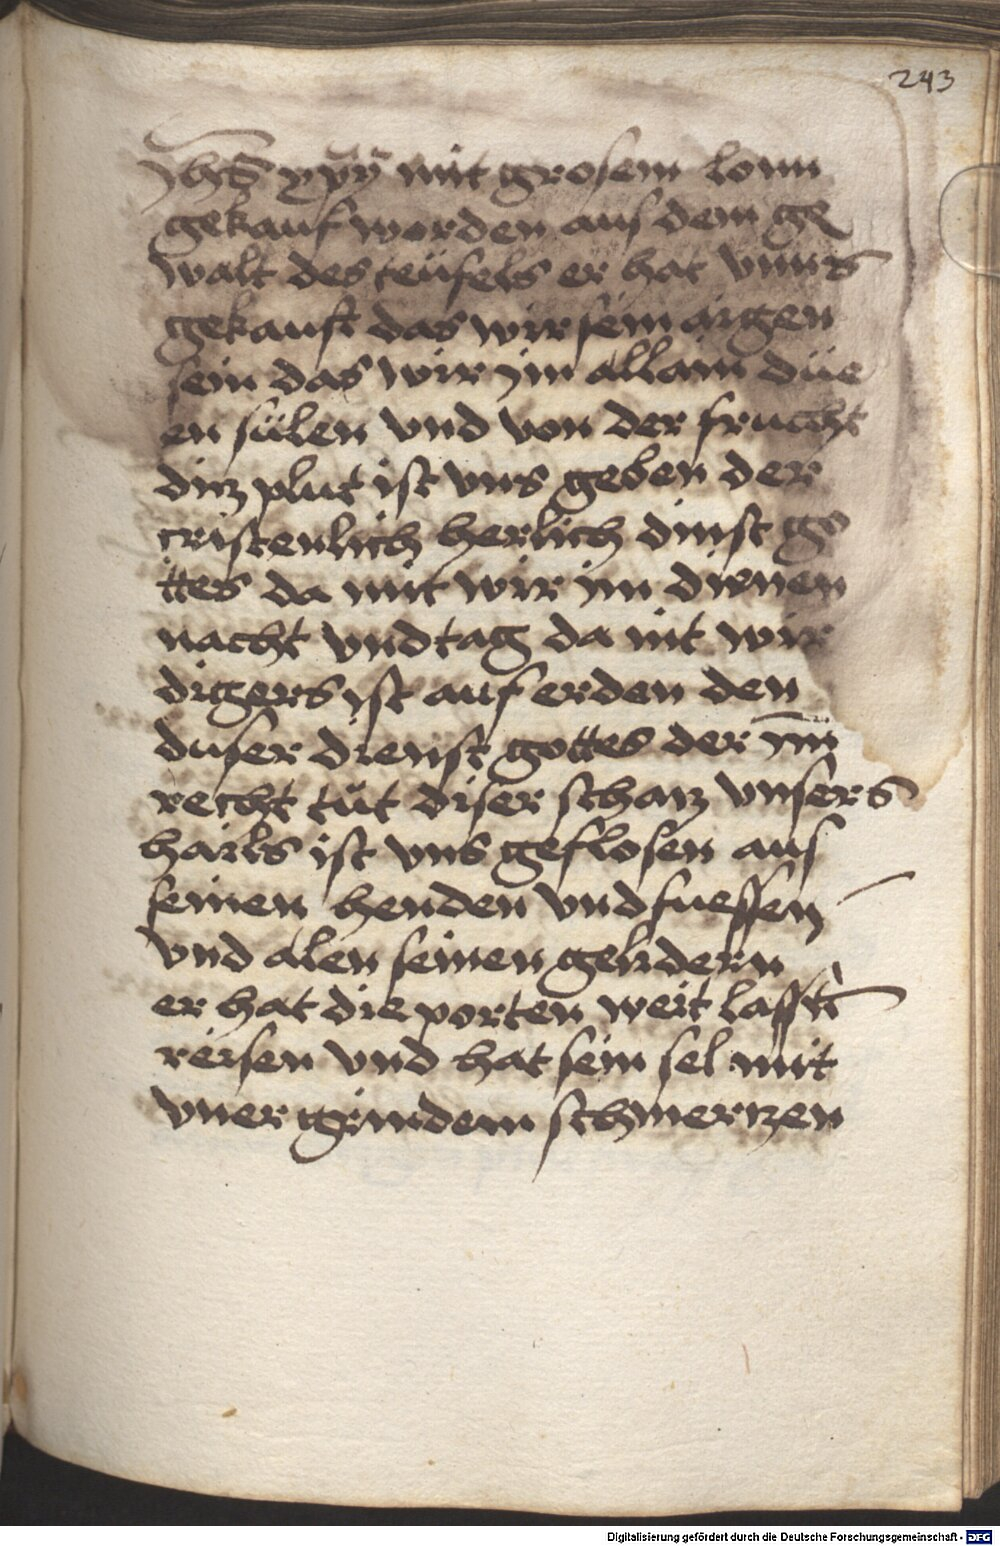 243
Jhs xpi mit grosem lonn
gekauf worden aus dem ge
walt des teüfels er hat vnns
gekauft das wir sein aigen
sein das wir jm allain die
en sülen vnd von der frucht
diz plut ist vns geben der
cristenlich herlich dinst go
ttes da mit wir im dienen
nacht vnd tag da nit wir
digers ist auf erden den
diser dienst gottes der im
recht tüt diser schaz vnsers
hails ist vns geflosen aus
seinen henden vnd fuessen
vnd alen seinen gelidern
er hat die porten weit lassn
reisen vnd hat sein sel mit
vner gründem schmerzen
Digitalisierung gefördert durch die Deutsche Forschungsgemeinschaft - DFG